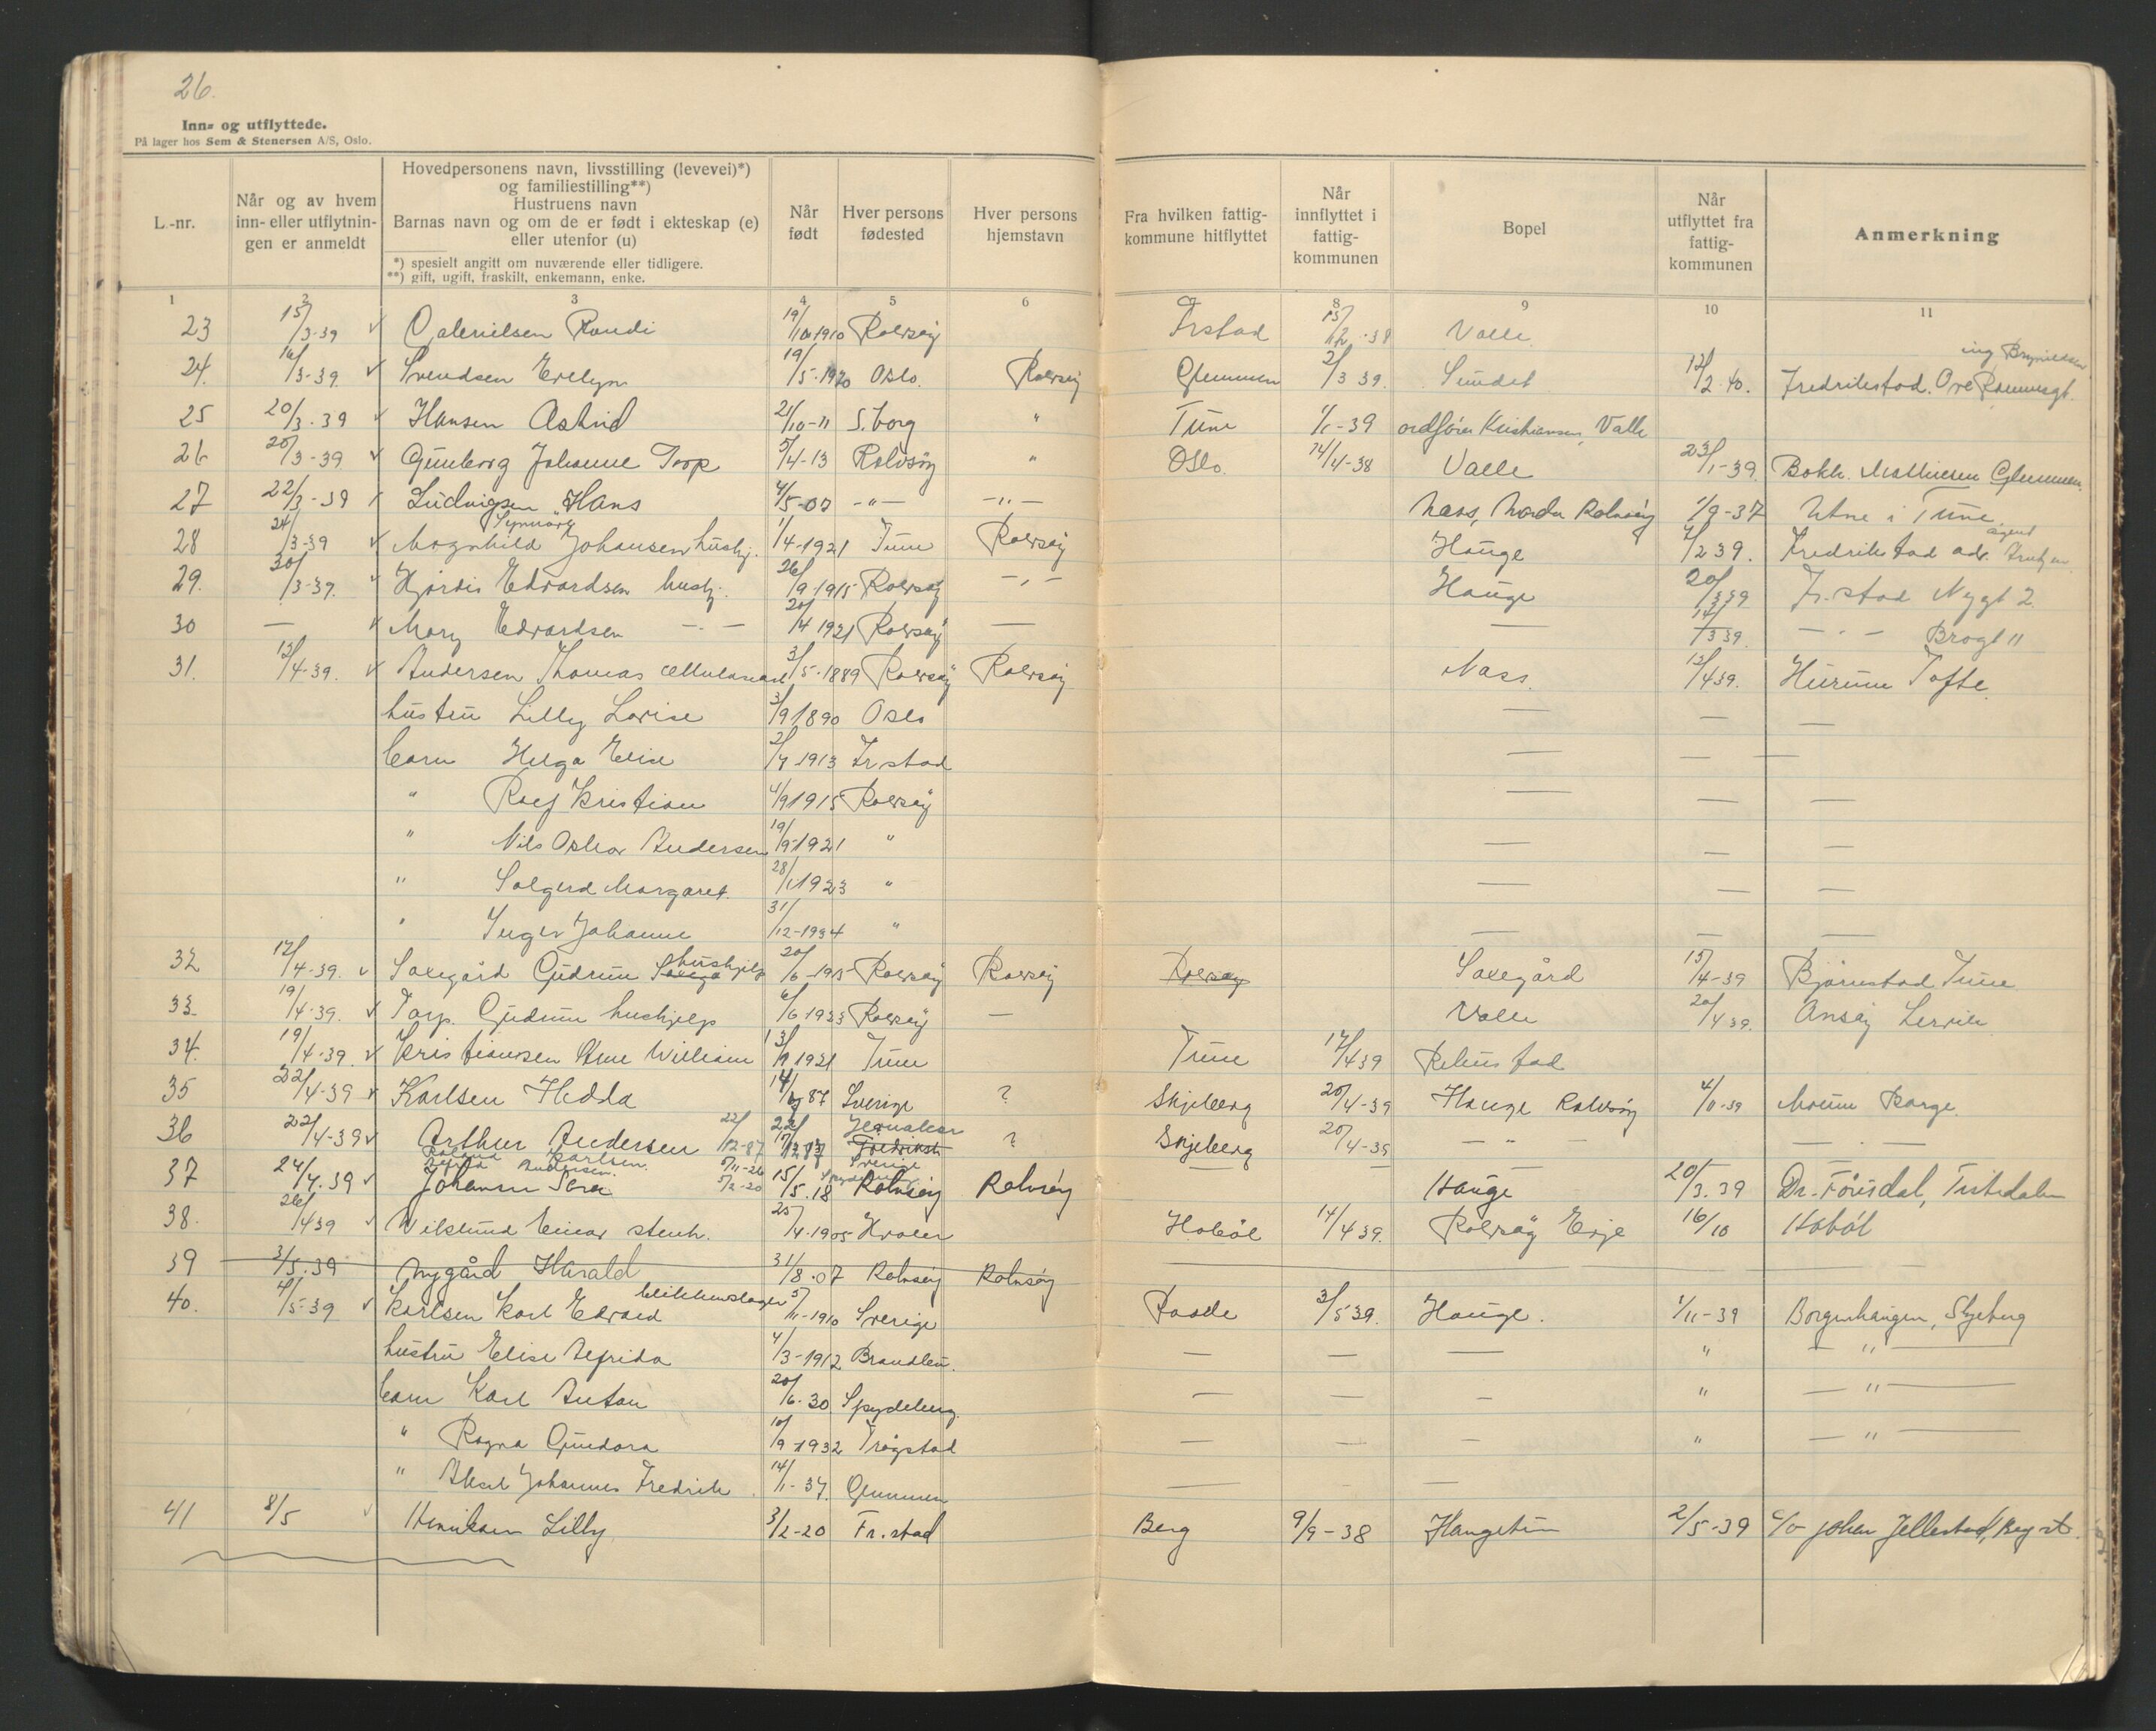 26.
Inn- og utflyttede.
På lager hos Sem & Stenersen A/S, Oslo.
L.-nr.
Når og av hvem inn- eller utflytnin- gen er anmeldt
Hovedpersonens navn, livsstilling (levevei)*) og familiestilling**) Hustruens navn Barnas navn og om de er født i ekteskap (e) eller utenfor (u)
*) spesielt angitt om nuværende eller tidligere.
**) gift, ugift, fraskilt, enkemann, enke.
Når født
Hver persons fødested
Hver persons hjemstavn
Fra hvilken fattig- kommune hitflyttet
Når innflyttet i fattig- kommunen
Bopel
Når utflyttet fra fattig- kommunen
Anmerkning
1 2 3 4 5 6 8 9 10 11
23 15/3-39 Randi 19/10 1910 Rolvsøy Frstad 15/12-38 Valle
24. 16/3-39. Svendsen Evelyn 19/5-1920 Oslo. Rolvsøy Glemmen 2/3 39. Sundet 12/2 40. Fredrikstad. Ove
25 20/3-39 Hansen Astrid 21/10-11 S.borg " Tune 1/1-39 ordfører Kristiansen, Valle
26 20/3-39 Gunborg Johanne Torp 5/4-13 Rolvsøy " Oslo. 14/4-38 Valle 23/1-39 Bokh. Mathiesen Glemmen.
27 22/3-39 Ludvigsen Hans 4/5-07 -"- -"- Næss, Nordre Rolvsøy 1/9-37 Utne i Tune
28 24/3-39 Magnhild Synnøve Johansen hushj. 1/4-1921 Tune Rolvsøy Hauge 1/2 39. Fredrikstad adr. agent
29. 30/3-39. Hjørdis Edvardsen hushj. 26/9-1915 Rolvsøy -"- Hauge 20/3 39 Fr.stad Nygt 2.
30 — Mary Edvardsen -"- 20/4 1921 Rolvsøy — — 14/3 39. -"- Brogt 11
31. 13/4-39. Andersen Thomas 3/5-1889 Rolvsøy Rolvsøy Næss. 12/4 39. Hurum Tofte.
hustru Lilly Lovise 3/9 1890 Oslo — — —
barn Helga Elise 2/7-1913 Fr.stad — — —
" Rolf Kristian 4/9 1915 Rolvsøy — — —
" Nils Oskar Andersen 19/9-1921 " — — —
" Solgerd Margaret. 28/1 1923 " — — —
" Inger Johanne 31/12-1934 " — — —
32 17/4-39. Saxegård Gudrun hushjelp 20/6-1915 Rolvsøy Rolvsøy Rolvsøy Saxegård 15/4-39 Bjørnstad Tune
33 19/4-39. Torp. Gudrun hushjelp 6/6 1923 Rolvsøy — Valle 20/4 39. Lervik
34. 19/4-39. Kristiansen Arne William 13/9 1921 Tune Tune 17/4 39
35 22/4-39 Karlsen Hedda 14/ 87 Sverige ? Skjeberg 20/4-39 Hauge Rolvsøy 4/11-39 Moum Borge.
36 22/4-39 Arthur Andersen 22/12-87 22/12 87 Fredrikst. ? Skjeberg 20/4-39 -"- — . —
Karlsen. 5/11-26 Sverige
Andersen. 5/2-20
37 24/4.39 Johansen 15/5.18 Rolvsøy Rolvsøy Hauge 20/3.39 Dr. Tistedalen
38. 26/4 39 Einar 25/4-1905 Hvaler Hobøl 14/4 39. Rolvsøy 16/10 Hobøl
39 3/5.39 Nygård Harald 31/8.07 Rolvsøy Rolvsøy
40. 4/5-39 Karlsen Karl Edvard blikkenslager 5/11-1910 Sverige Raade 3/5 39. Hauge. 1/11-39 Borgenhaugen, Skjeberg
hustru Elise Alfrida 4/3-1912 Brandbu. — — — " — " —
barn Karl Anton 20/6-30 Spydeberg. — — — " — " —
" Ragna Gundora 10/9-1932 Trøgstad — — — " — " —
" Aksel Johannes Fredrik 14/1-37. Glemmen — — —
41 8/5 Henriksen Lilly 3/2-20 Fr.stad Berg 9/9-38 Haugetun 2/5-39 c/o Johan Jellestad, Berg st.